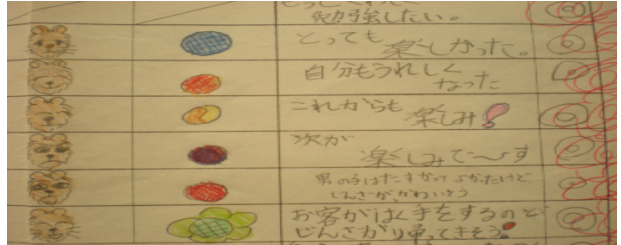 勉強したい。
とっても楽しかった。
自分もうれしく
なった
これからも楽しみ!
次が
楽しみで〜す
男の子はたすかってよかったけど
じんざがかわいそう
お客がはく手をするのと
じんざがり帰ってきそう!